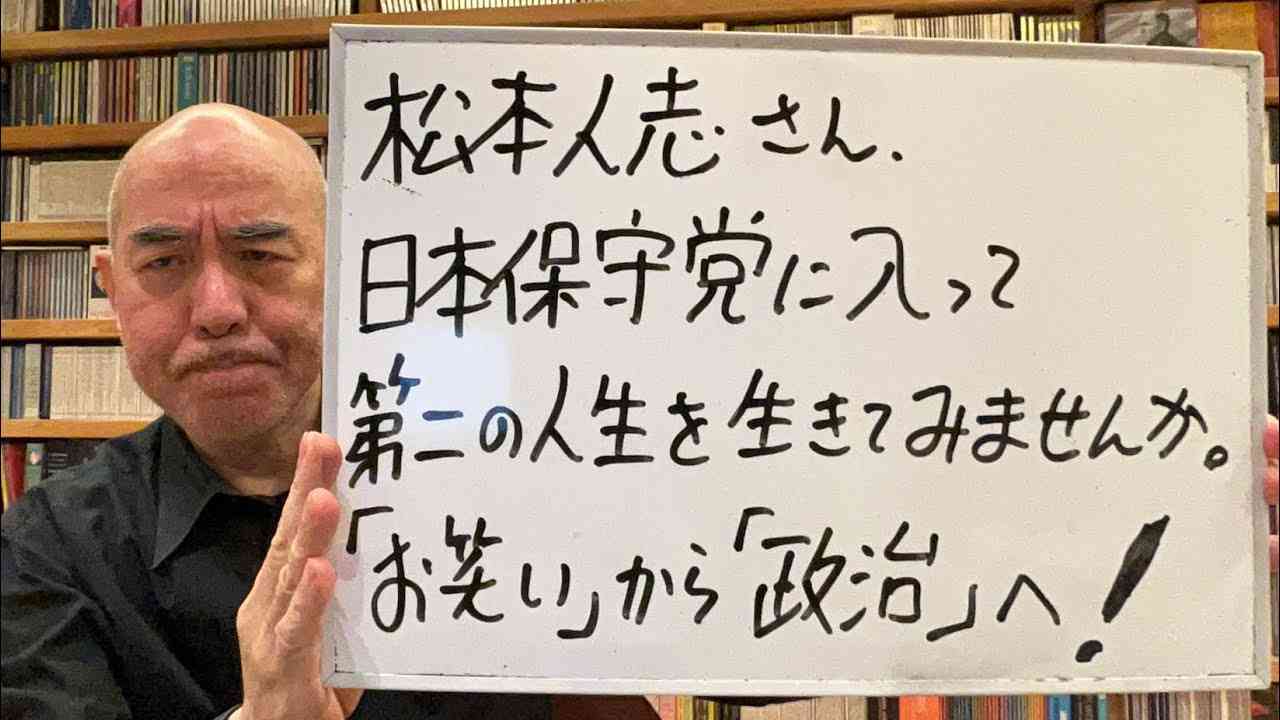 松本人志さん、
日本保守党に入って
第二の人生を生きてみませんか。
「お笑い」から「政治」へ！